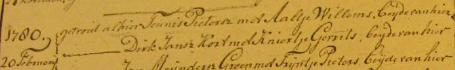 1780, getrout alhier Teunis Pietersz met Aaltje Willems, beyde van hier
Dirk Jansz Kort met Knietje Gerrits, beyde van hier
20 February Meindersz Groen met Trijntje Pieters beyde van hier